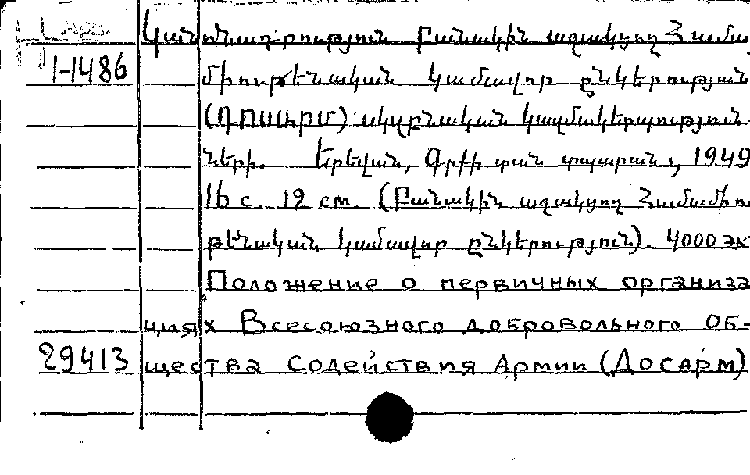 Կանոնադրություն Բանակին աջակցող Համա
1-1486 միութենական կամավոր ընկերության
(ԴՈՍԱՐՄ) սկզբնական կազմակերպություն
ների. Երևան, Գրքի պան տպարան, 1949
16 с. 19 см. (Բանակին աջակցող Համամիու
թենական կամավոր ընկերություն). 4000 эк
Положение о первичных организа
циях Всесоюзного добровольного об-
29413 щества Содействия Армии (Досарм)